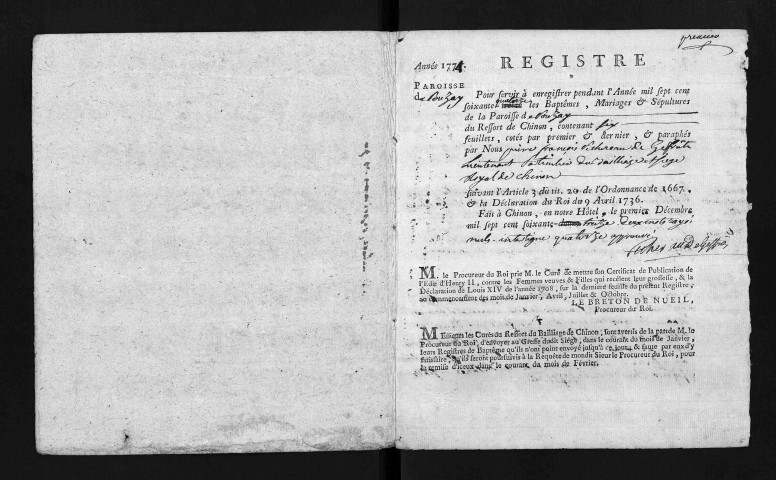 premier
Année 1774.
REGISTRE
PAROISSE
de Pouzay
Pour servir à enregistrer pendant l'Année mil sept cent
quatorze
soixante les Baptêmes, Mariages & Sépultures
de la Paroisse de Pouzay
du Ressort de Chinon, contenant six
feuillets, cotés par premier & dernier, & paraphés
par Nous pierre françois
Lieutenant particulier du Bailliage et siege
Royal de chinon
suivant l'Article 3 du tit. 20 de l'Ordonnance de 1667.
& la Déclaration du Roi du 9 Avril 1736.
Fait à Chinon, en notre Hôtel, le premier Décembre
mil sept cent soixante treize deux mots rayés
nuls interligne quatorze approuvé
M. le Procureur du Roi prie M. le Curé de mettre son Certificat de Publication de
l'Edit d'Henry II, contre les Femmes veuves & Filles qui recélent leur grossesse, & la
Déclaration de Louis XIV de l'année 1708, sur la derniere feuille du présent Registre,
au commencement des mois de Janvier, Avril, Juillet & Octobre.
LE BRETON DE NUEIL,
Procureur du Roi.
Messieurs les Curés du Ressort du Bailliage de Chinon, sont avertis de la part de M. le
Procureur du Roi, d'envoyer au Greffe dudit Siége, dans le courant du mois de Janvier,
leurs Registres de Baptême qu'ils n'ont point envoyé jusqu'à ce jour, & faute par eux d'y
satisfaire, qu'ils seront poursuivis à la Requête de mondit Sieur le Procureur du Roi, pour
la remise d'iceux dans le courant du mois de Février.